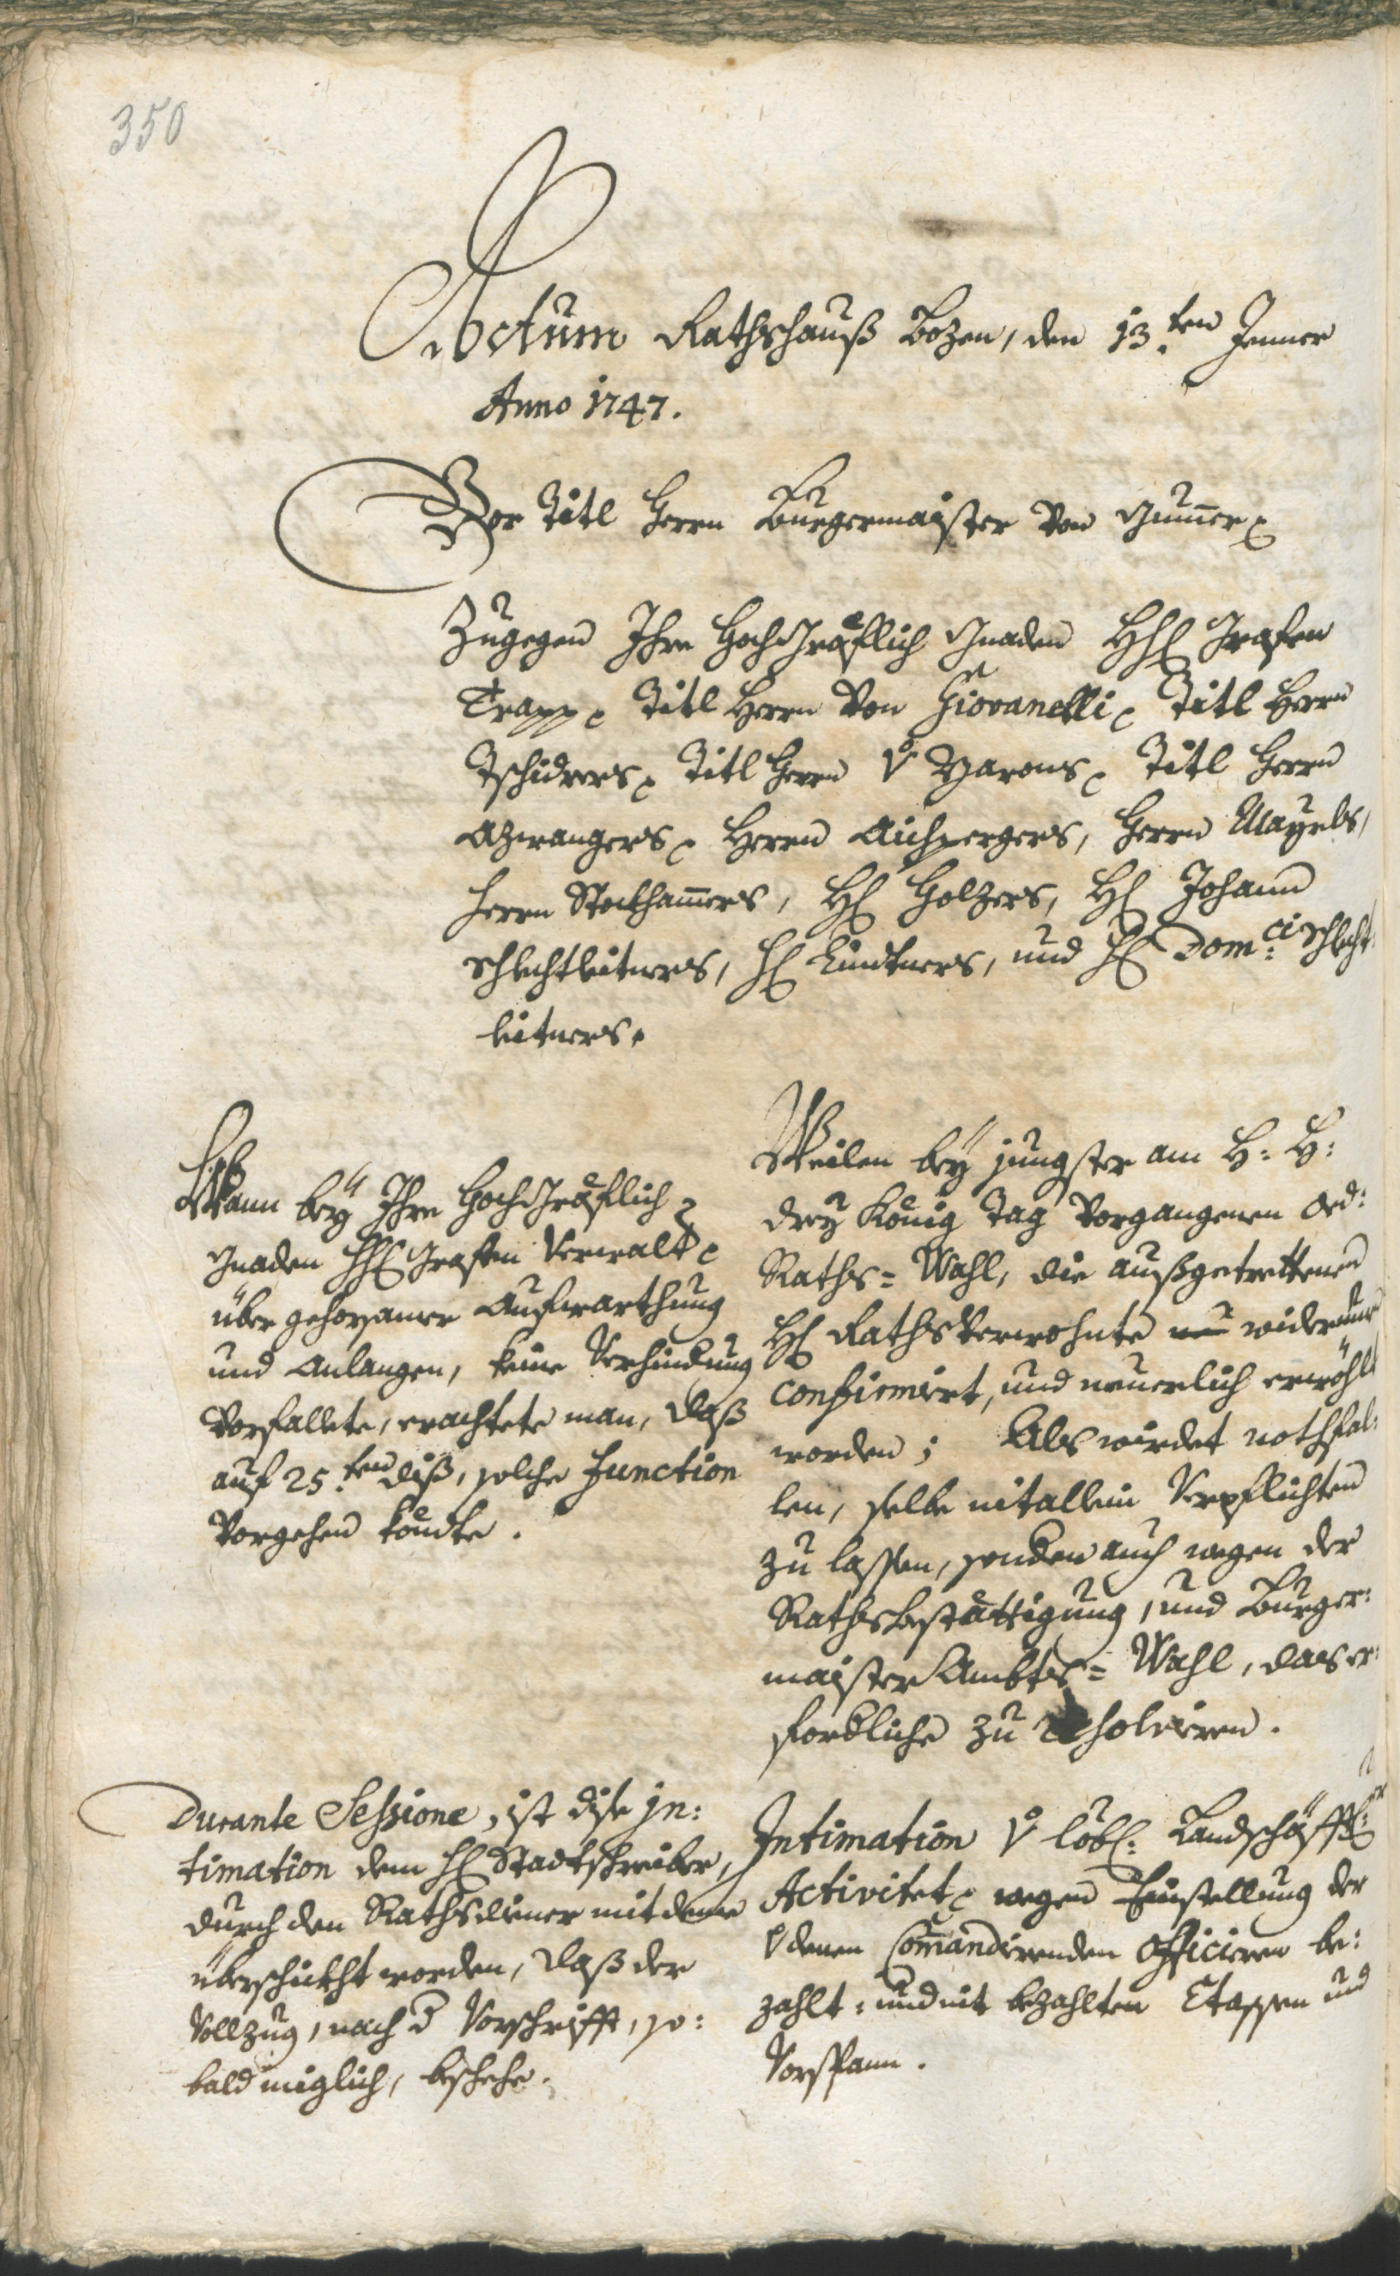 350
Actum Rathshauß Bozen, den 13.ten Jenner
Anno 1747.
Vor Titl Herrn Burgermaister von Gumer
Zugegen Ihre Hochgräflich Gnaden HH Grafen
Trapp, Titl Herrn von Giovanelli, Titl Herrn
Tschiderers, Titl Herrn v Marons, Titl Herrn
Azwangers, Herrn Aichpergers, Herrn Mayrls,
Herrn Stockhamers, H Holzers, H Johann
Schlechtleitners, H Lindtners, und H Dom:ci Schlecht
leitners.
Wann bey Ihro Hochgräflich
Gnaden HH Grafen Verwalt
über gehorsamer Aufwarthung
und Anlangen, keine Verhindung
vorfallete, erachtete man, daß
auf 25.ten diß, solche Function
vorgehen köndte.
Weilen bey jüngster am H: H:
drey König Tag vorgangenen ord:
Raths= Wahl, die außgetrettenen
H Rathsverwohnte widerumb
confirmirt, und neuerlich erwöhlt
worden; Als wirdet nothfal:
len, selbe nitallein Verpflichten
zu lassen, sonderm auch wegen der
Rathsbestättigung, und Burger:
maister Ambts= Wahl, das er:
forderliche zu resolviren.
Durante Sessione, ist dise In:
timation dem H Stadtschreiber,
durch den Rathsdiener mit deme
überschickht worden, daß der
Vollzug, nach d Vorschrifft, so:
bald miglich, beschehe.
Intimation v löbl: Landschäfftl:
Activitet, wegen Einstellung der
v denen Comandirenden Officiren be:
zahlt: und nit bezahlten Etappen und
Vorspann.